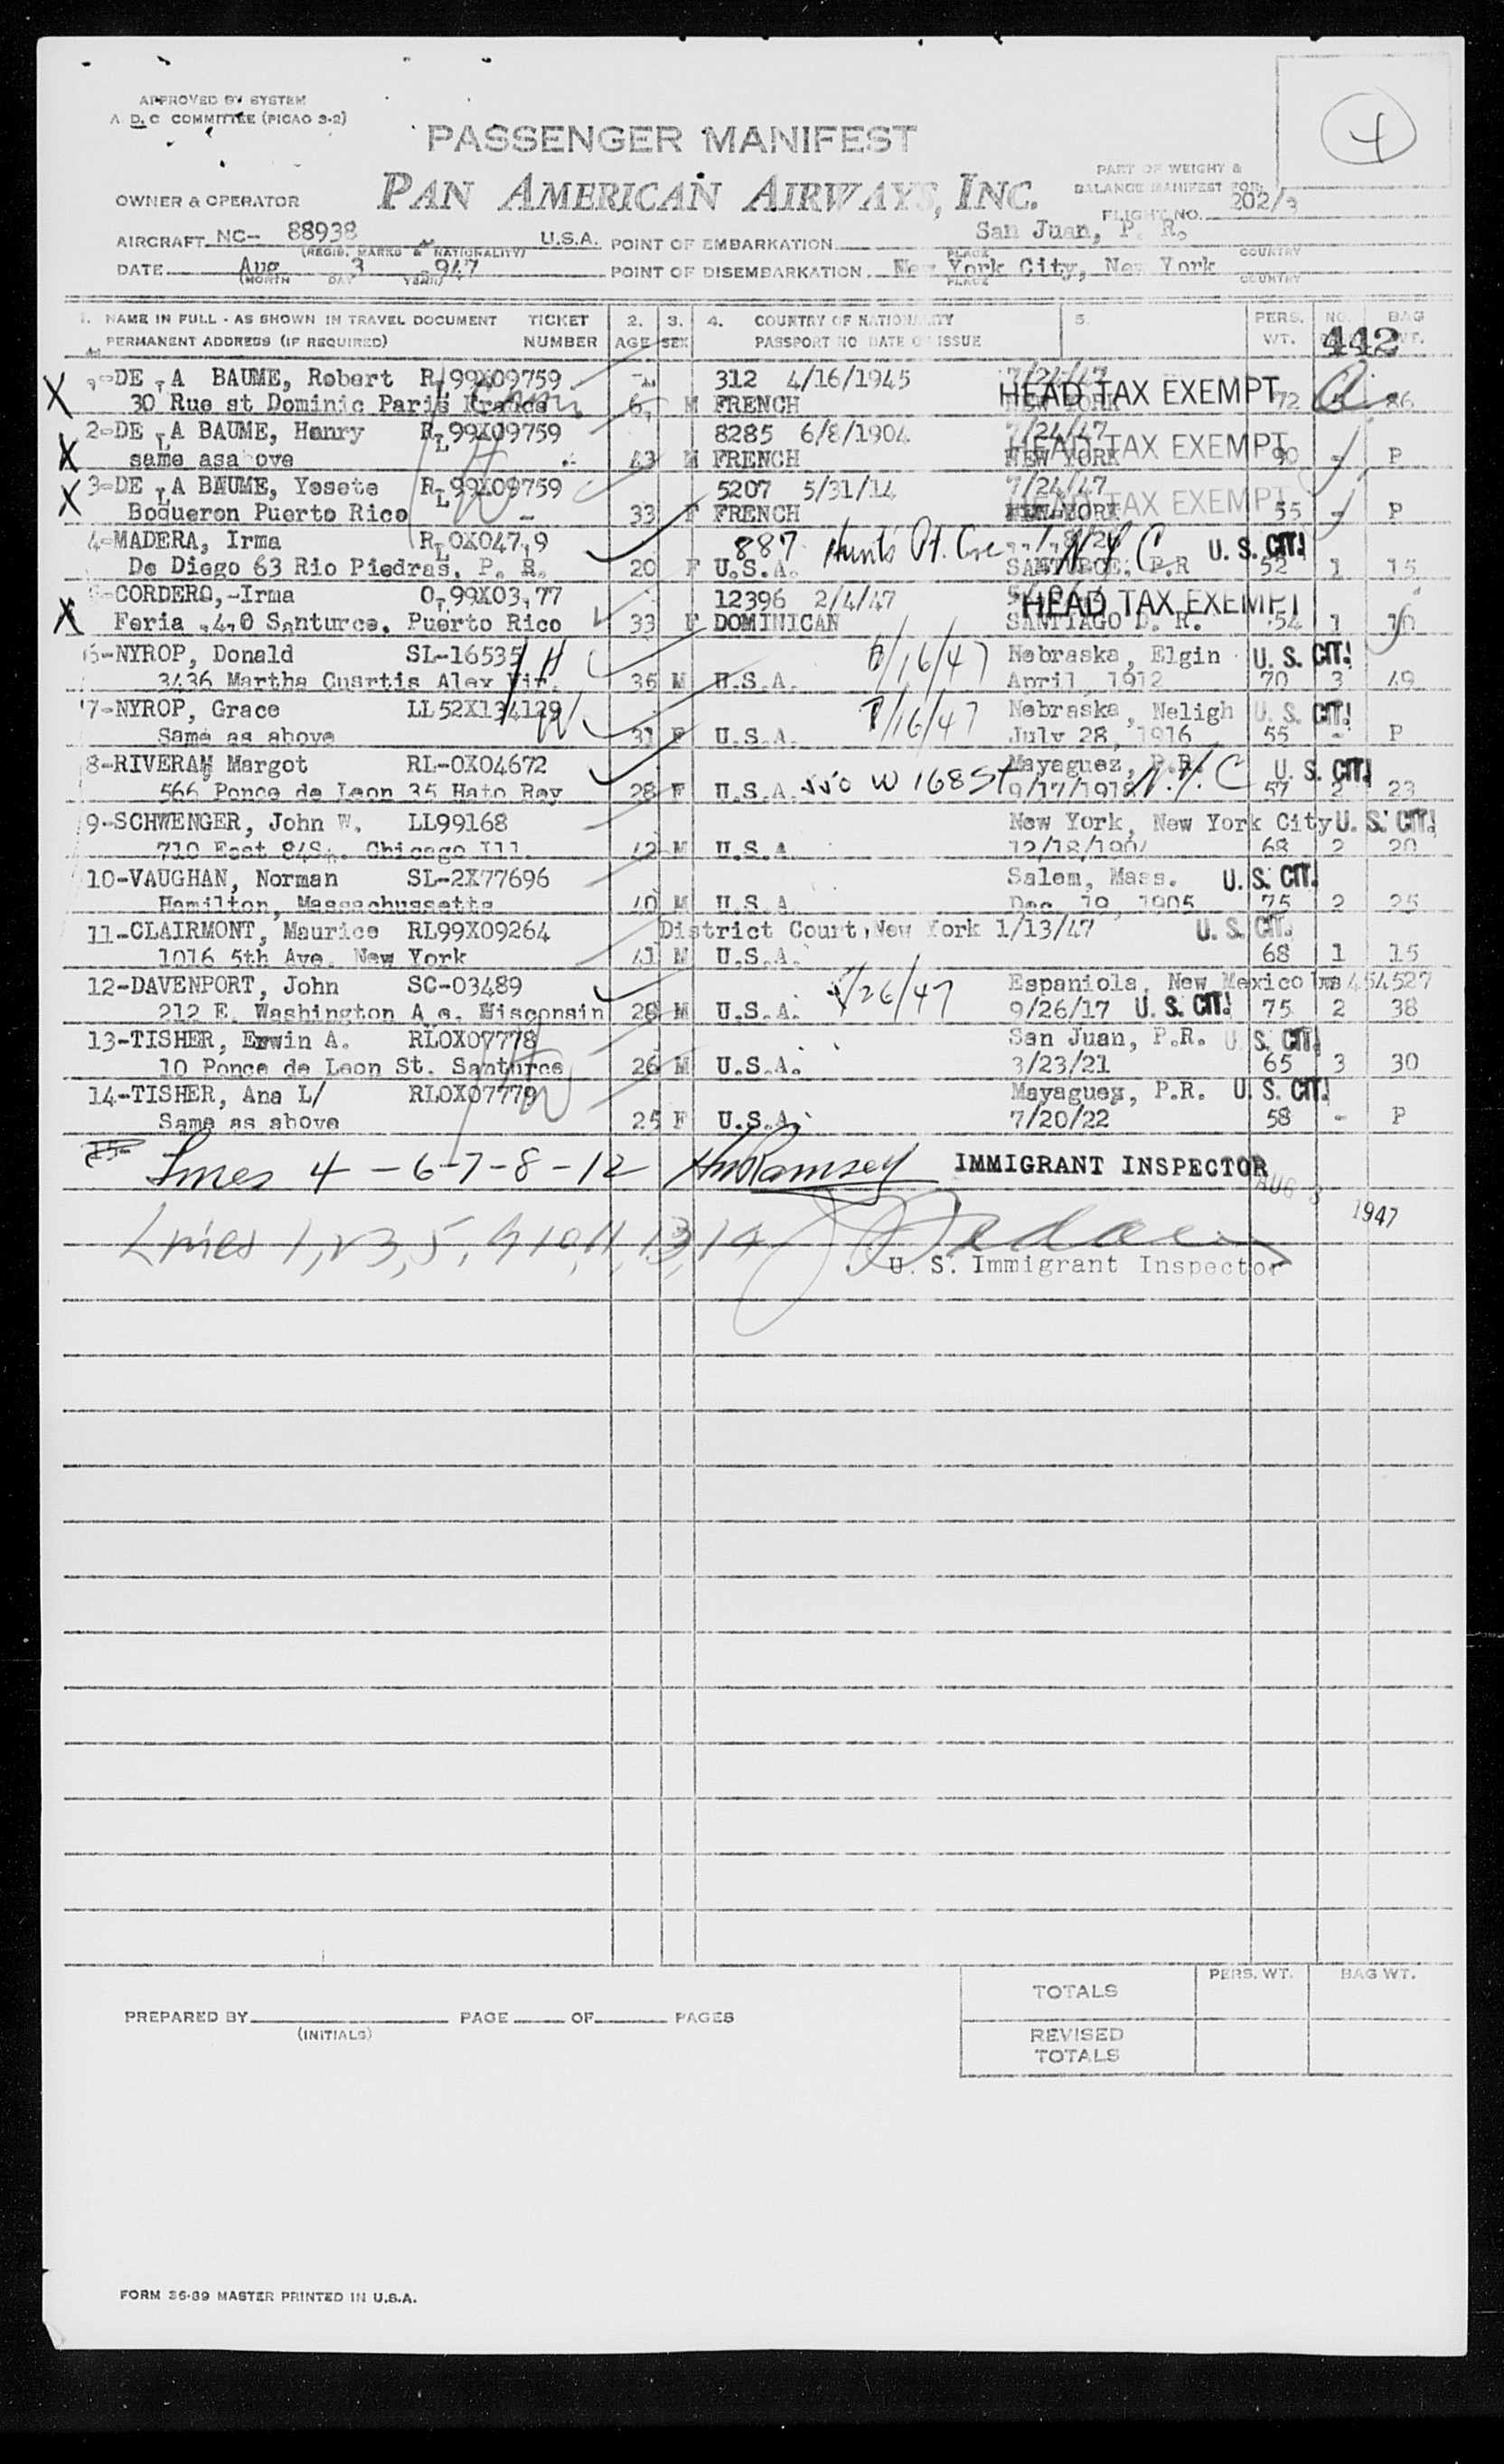 APPROVED BY SYSTEM
A D. C COMMITTEE (PICAO 3-2)
4
PASSENGER MANIFEST
PAN AMERICAN AIRWAYS, INC.
PART OF WEIGHT &
BALANCE MANIFEST FOR
FLIGHT NO. 202/3
OWNER & OPERATOR
AIRCRAFT NC- 88938 U.S.A. POINT OF EMBARKATION San Juan, P. R.
(REGIS. MARKS & NATIONALITY) PLACE COUNTRY
DATE Aug 3 947 POINT OF DISEMBARKATION. New York City, New York
(MONTH DAY YEAR) PLACE COUNTRY
1. NAME IN FULL - AS SHOWN IN TRAVEL DOCUMENT TICKET 2. 3. 4. COUNTRY OF NATIONALITY 5. PERS. NO. BAG
PERMANENT ADDRESS (IF REQUIRED) NUMBER AGE SEX PASSPORT NO DATE OF ISSUE WT. 442 WT.
X DE LA BAUME, Robert RL99X09759 312 4/16/1945 7/24/47
30 Rue st Dominic Paris France M FRENCH NEW YORK HEAD TAX EXEMPT 72
X 2-DE LA BAUME, Henry RL99X09759 8285 6/8/1904 7/24/47
same asa ove 43 M FRENCH NEW YORK HEAD TAX EXEMPT 90 - P
X 3-DE LA BAUME, Yosete RL99X09759 5207 5/31/14 7/24/47
Boqueron Puerto Rico 33 F FRENCH NEW YORK HEAD TAX EXEMPT 55 - P
4-MADERA, Irma 887 Hunts Pt. Ave N.Y.C U. S. CIT.
De Diego 63 Rio Piedras, P. R. 20 F U.S.A. SANTURCE, P.R 52 1 15
X CORDERO,-Irma 12396 2/4/47 HEAD TAX EXEMPT
Feria Santurce, Puerto Rico 33 F DOMINICAN SANTIAGO D. R. 54 1 10
6-NYROP, Donald SL-16535 /16/47 Nebraska, Elgin U. S. CIT.
3436 Martha Cusrtis Alex Vir. 35 M U.S.A. April, 1912 70 3 49
7-NYROP, Grace LL52X134129 /16/47 Nebraska, Neligh U. S. CIT.
Same as above 31 F U.S.A. July 28, 1916 55 - P
8-RIVERA Margot RL-0X04672 Mayaguez, P.R. U. S. CIT.
566 Ponce de Leon 35 Hato Rey 28 F U.S.A. 550 W 168 St 9/17/1918 N.Y.C 57 2 23
9-SCHWENGER, John W. LL99168 New York, New York City U. S. CIT.
710 East 84St. Chicago Ill. 42 M U.S.A 12/18/1904 68 2 20
10-VAUGHAN, Norman SL-2X77696 Salem, Mass. U. S. CIT.
Hamilton, Massachussetts 40 M U.S.A Dec. 19, 1905 75 2 25
11-CLAIRMONT, Maurice RL99X09264 District Court, New York 1/13/47 U. S. CIT.
1016 5th Ave. New York 41 M U.S.A. 68 1 15
12-DAVENPORT, John SC-03489 /26/47 Espaniola, New Mexico 454527
212 E. Washington A e. Wisconsin 28 M U.S.A. 9/26/17 U. S. CIT. 75 2 38
13-TISHER, Erwin A. RLOX07778 San Juan, P.R. U. S. CIT.
10 Ponce de Leon St. Santurce 26 M U.S.A. 3/23/21 65 3 30
14-TISHER, Ana L/ RLOX07779 Mayaguez, P.R. U. S. CIT.
Same as above 25 F U.S.A. 7/20/22 58 - P
15-
Lines 4-6-7-8-12 HW Ramsey IMMIGRANT INSPECTOR
AUG 3 1947
Lines 1, 2, 3, 5, 9, 10, 11, 13, 14
U. S. Immigrant Inspector
TOTALS PERS. WT. BAG WT.
PREPARED BY PAGE OF PAGES
(INITIALS)
REVISED
TOTALS
FORM 36-89 MASTER PRINTED IN U.S.A.